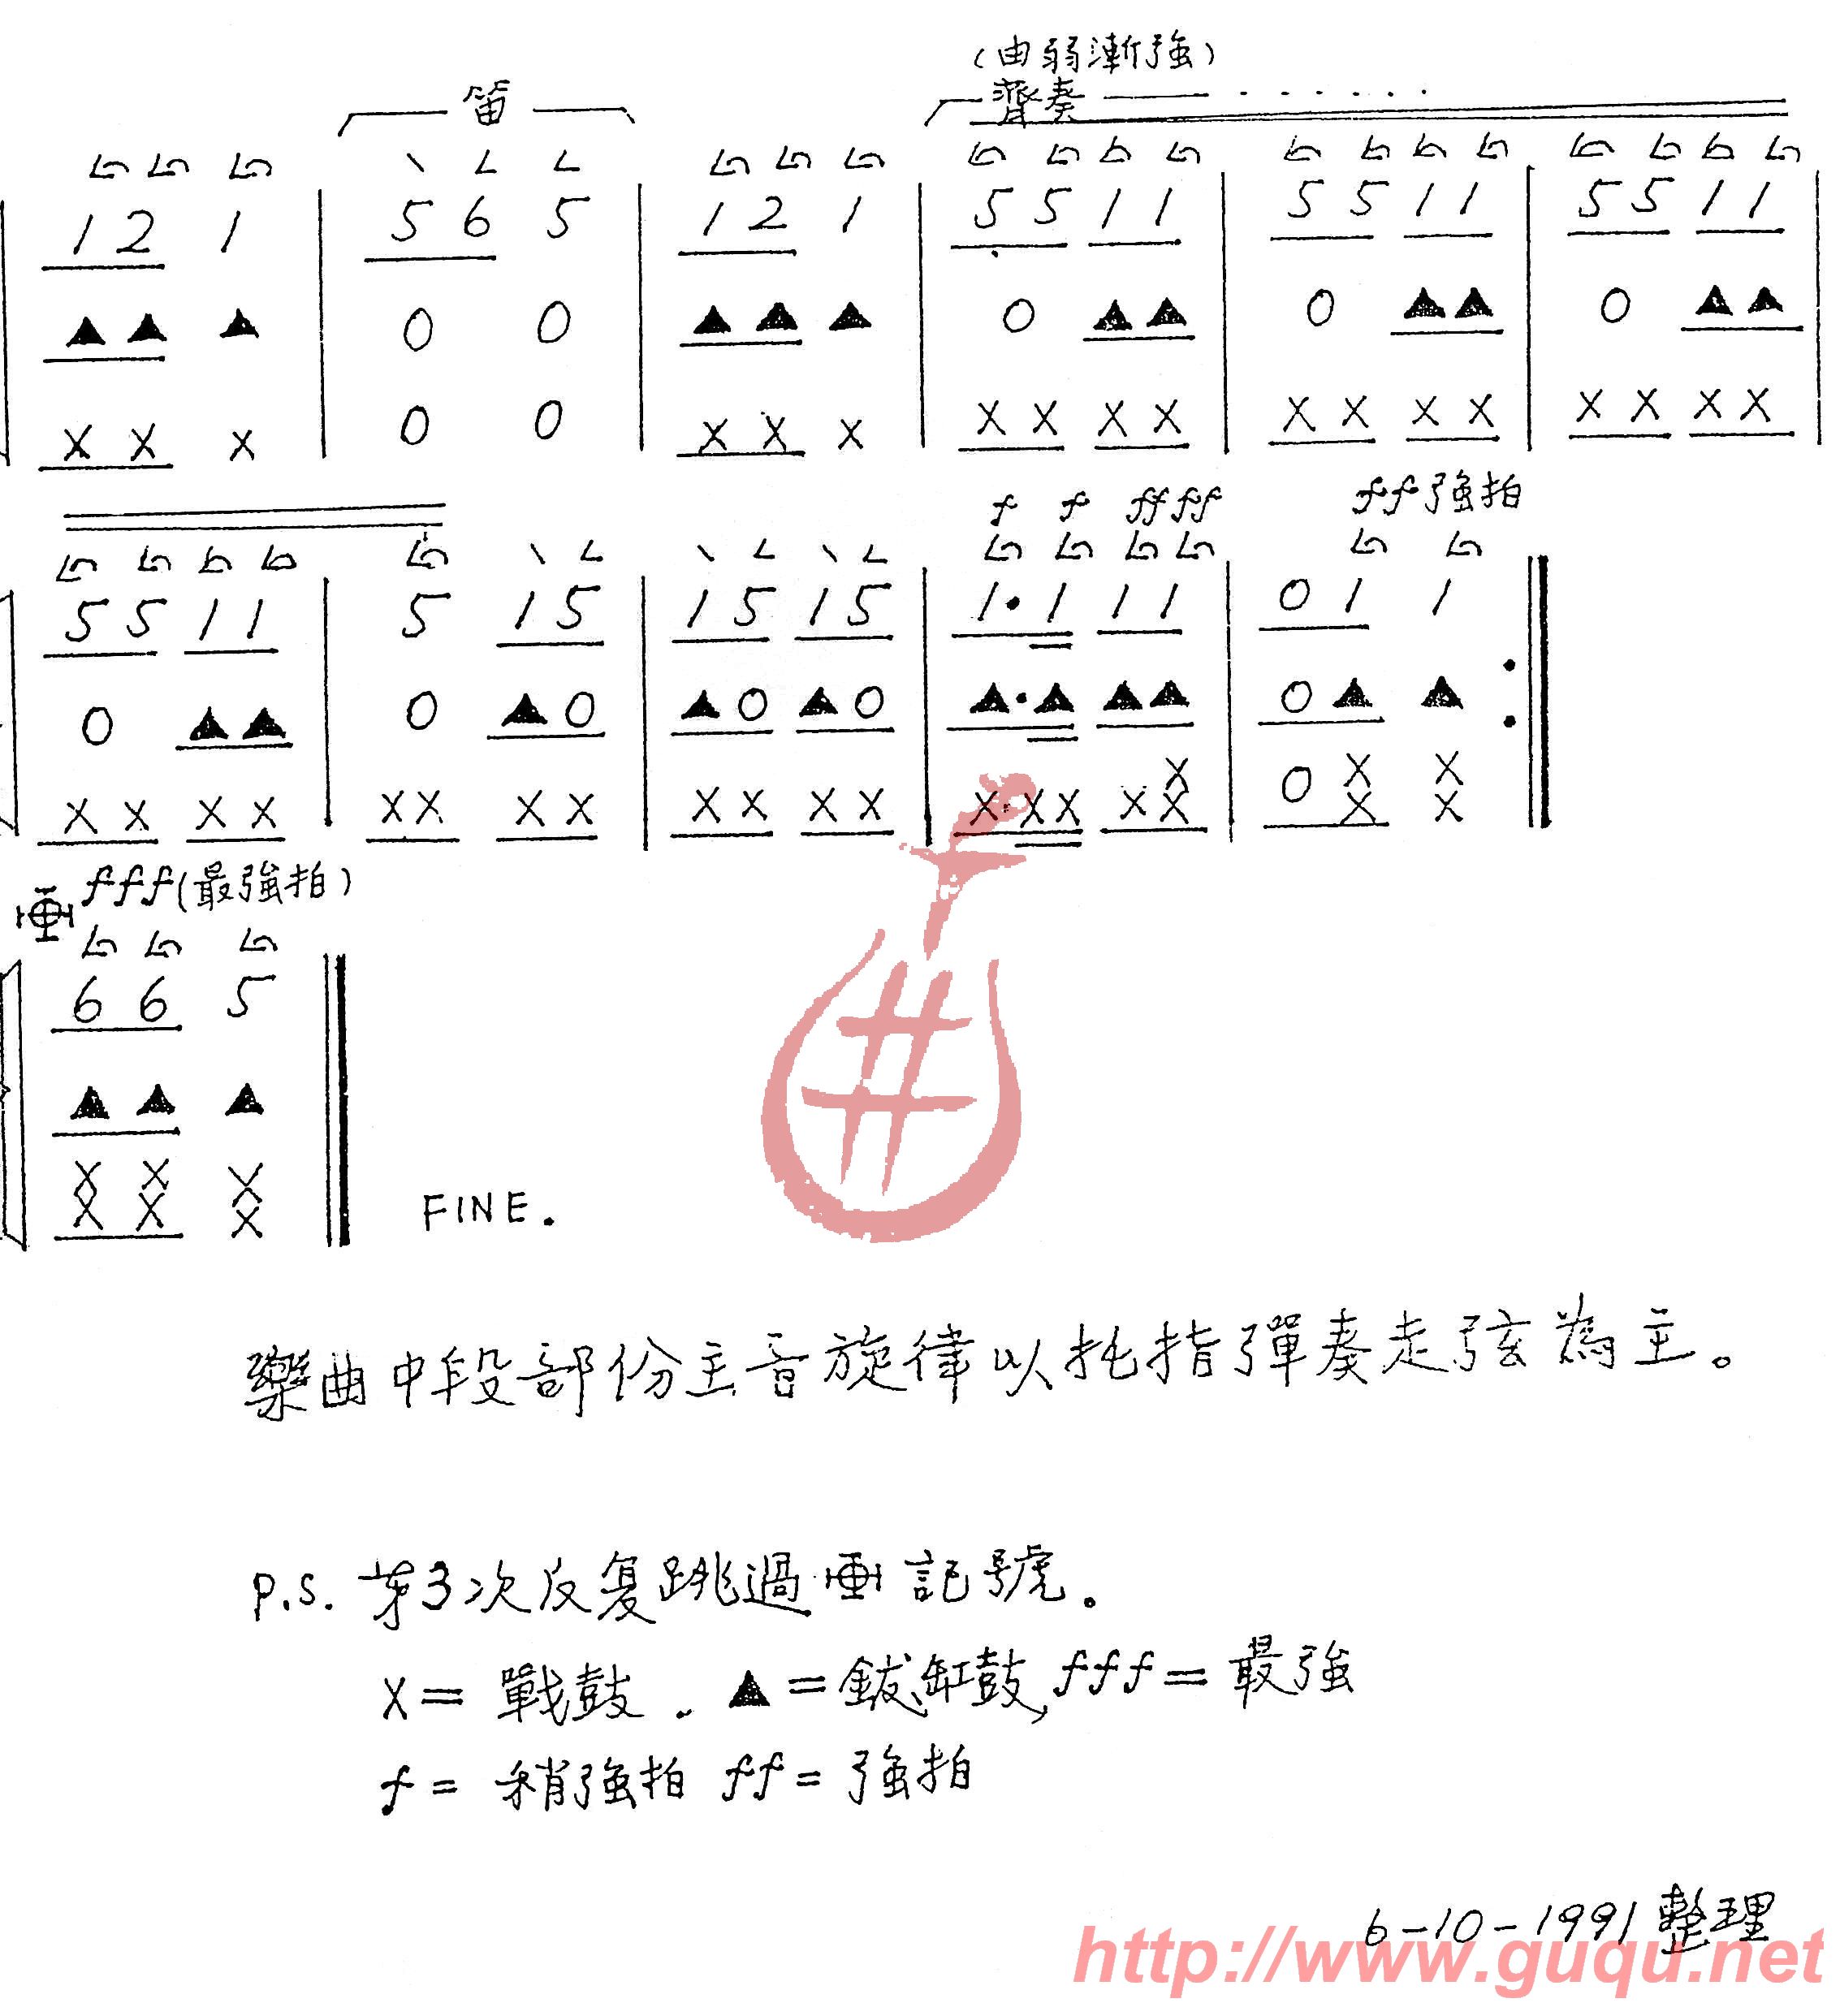 (由弱漸強)
笛 齊奏 . . . . . .
1 2 1 | 5 6 5 | 1 2 1 | 5 5 1 1 | 5 5 1 1 | 5 5 1 1 |
▲ ▲ ▲ | 0 0 | ▲ ▲ ▲ | 0 ▲ ▲ | 0 ▲ ▲ | 0 ▲ ▲ |
X X X | 0 0 | X X X | X X X X | X X X X | X X X X |
f f ff ff ff 強拍
5 5 1 1 | 5 1 5 | 1 5 1 5 | 1 · 1 1 1 | 0 1 1
0 ▲ ▲ | 0 ▲ 0 | ▲ 0 ▲ 0 | ▲ · ▲ ▲ ▲ | 0 ▲ ▲ :
X X X X | X X X X | X X X X | X · X X X X | 0 X X
fff (最強拍)
6 6 5
▲ ▲ ▲
X X X
X X X
FINE.
樂曲中段部份主音旋律以托指彈奏走弦為主。
P.S. 第3次反复跳過 記號。
X = 戰鼓. ▲ = 鈸、缸鼓, fff = 最強
f = 稍強拍 ff = 強拍
6-10-1991 整理
http://www.guqu.net